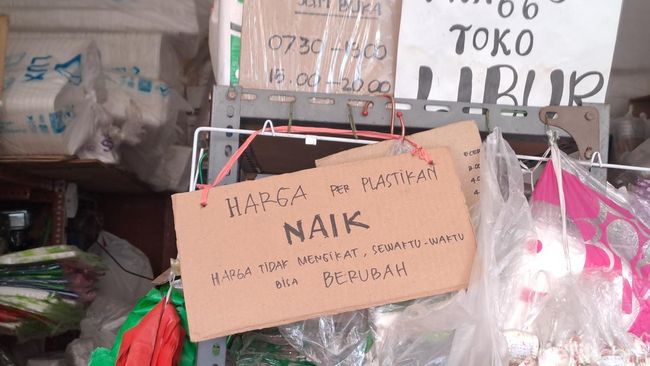 JAM BUKA
07.30 - 13.00
15.00 - 20.00
TOKO
LIBUR
HARGA PER PLASTIKAN
NAIK
HARGA TIDAK MENGIKAT, SEWAKTU-WAKTU
BISA BERUBAH